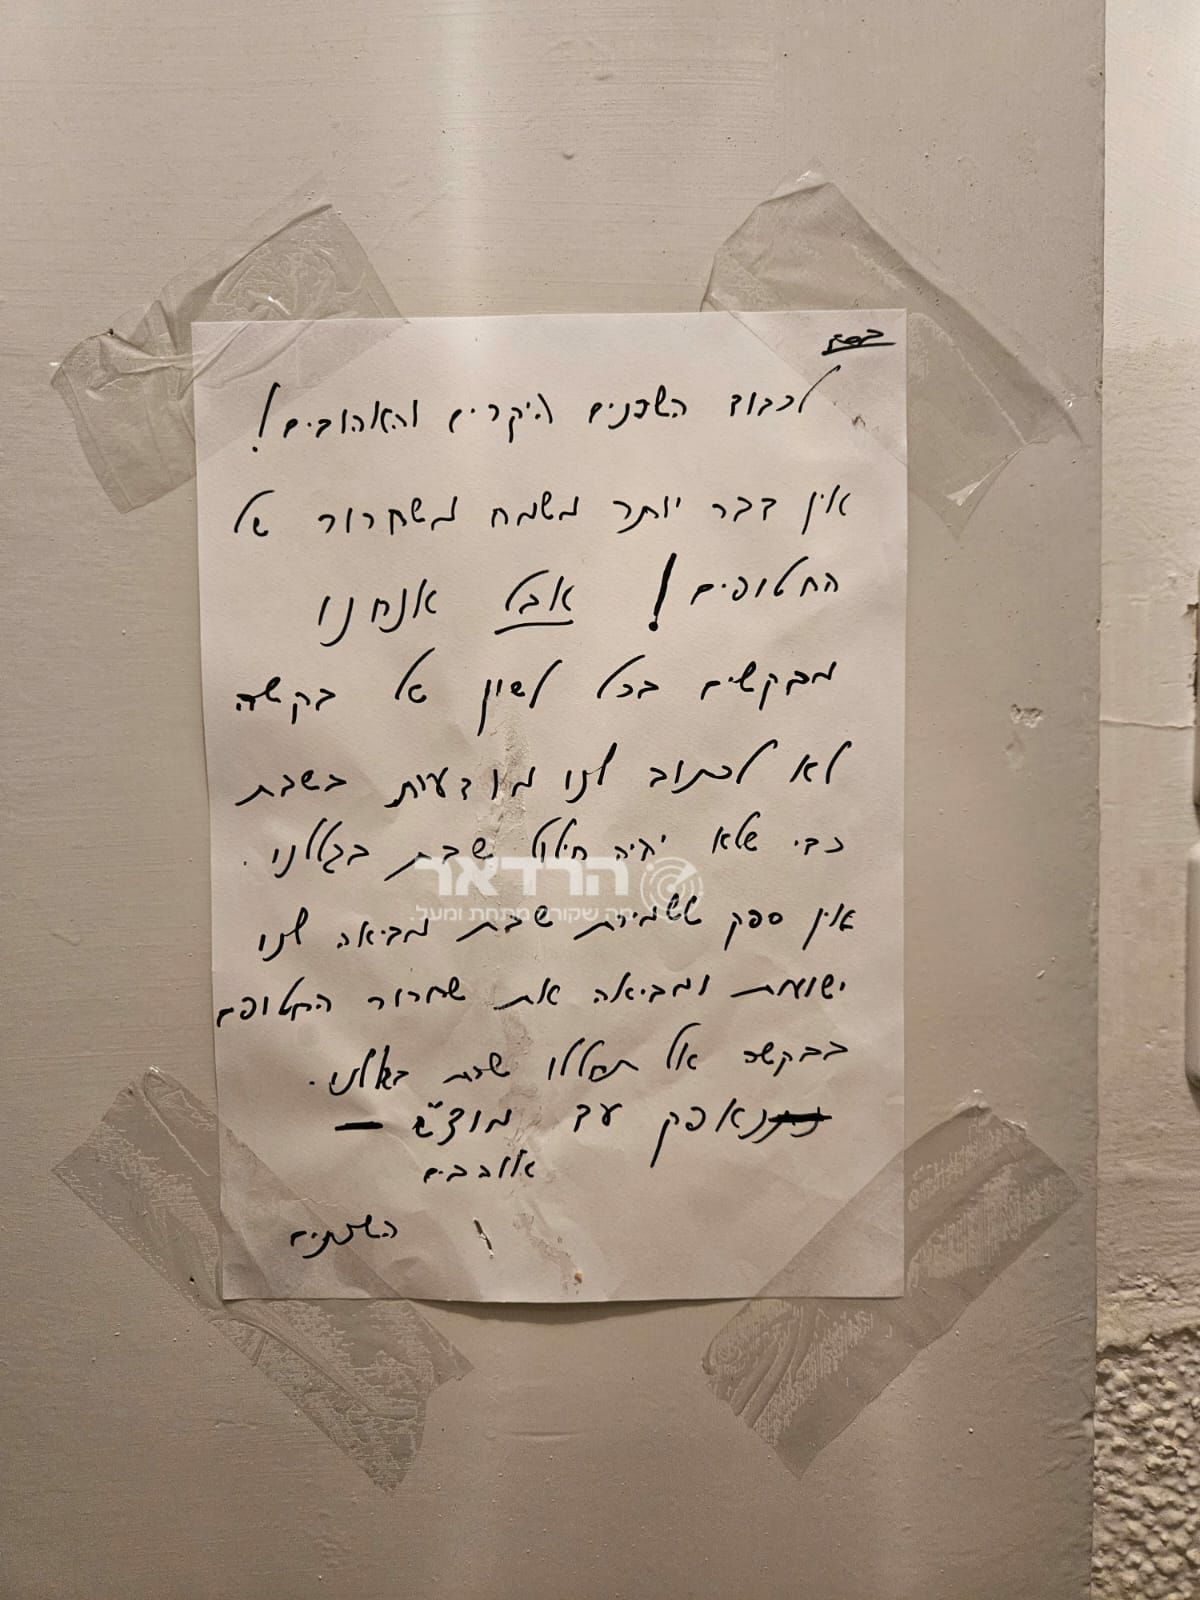 בס״ד
לכבוד השכנים היקרים והאהובים!
אין דבר יותר משמח משחרור של
החטופים! אבל אנחנו
מבקשים בכל לשון של בקשה
לא לכתוב לנו מודעות בשבת
כדי שלא יהיה חילול שבת בגללנו.
הרדאר
מה שקורה מתחת ומעל.
אין ספק ששמירת שבת מביאה לנו
ישועות ומביאה את שחרור החטופים
בבקשה אל תחללו שבת בגללנו.
נאפק עד מוצ״ש –
אוהבים
השכנים